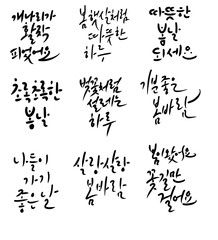 개나리가
활짝
피었어요
봄햇살처럼
따뜻한
하루
따뜻한
봄날
되세요
초록초록한
봄날
벚꽃처럼
설레는
하루
기분좋은
봄바람
나들이
가기
좋은날
살랑살랑
봄바람
봄이왔어요
꽃길만
걸어요